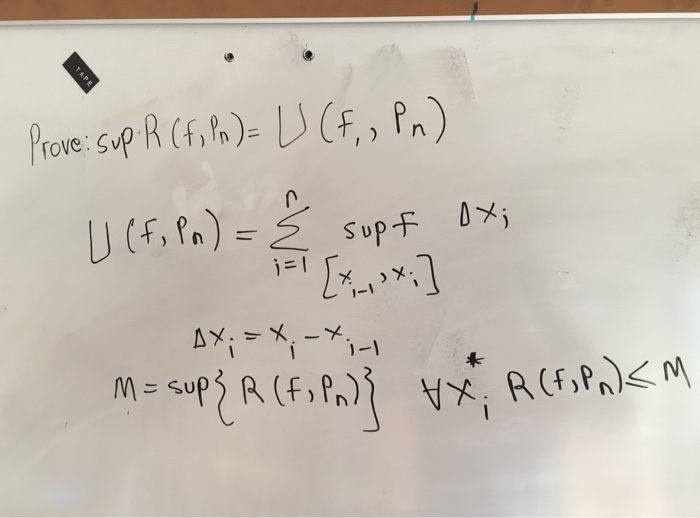 TAPE
Prove: sup R (f, Pn) = U (f, Pn)
U (f, Pn) = n Σ i=1 sup f [xi-1, xi] Δxi
Δxi = xi - xi-1
M = sup{ R (f, Pn)} ∀x*i R (f, Pn) ≤ M